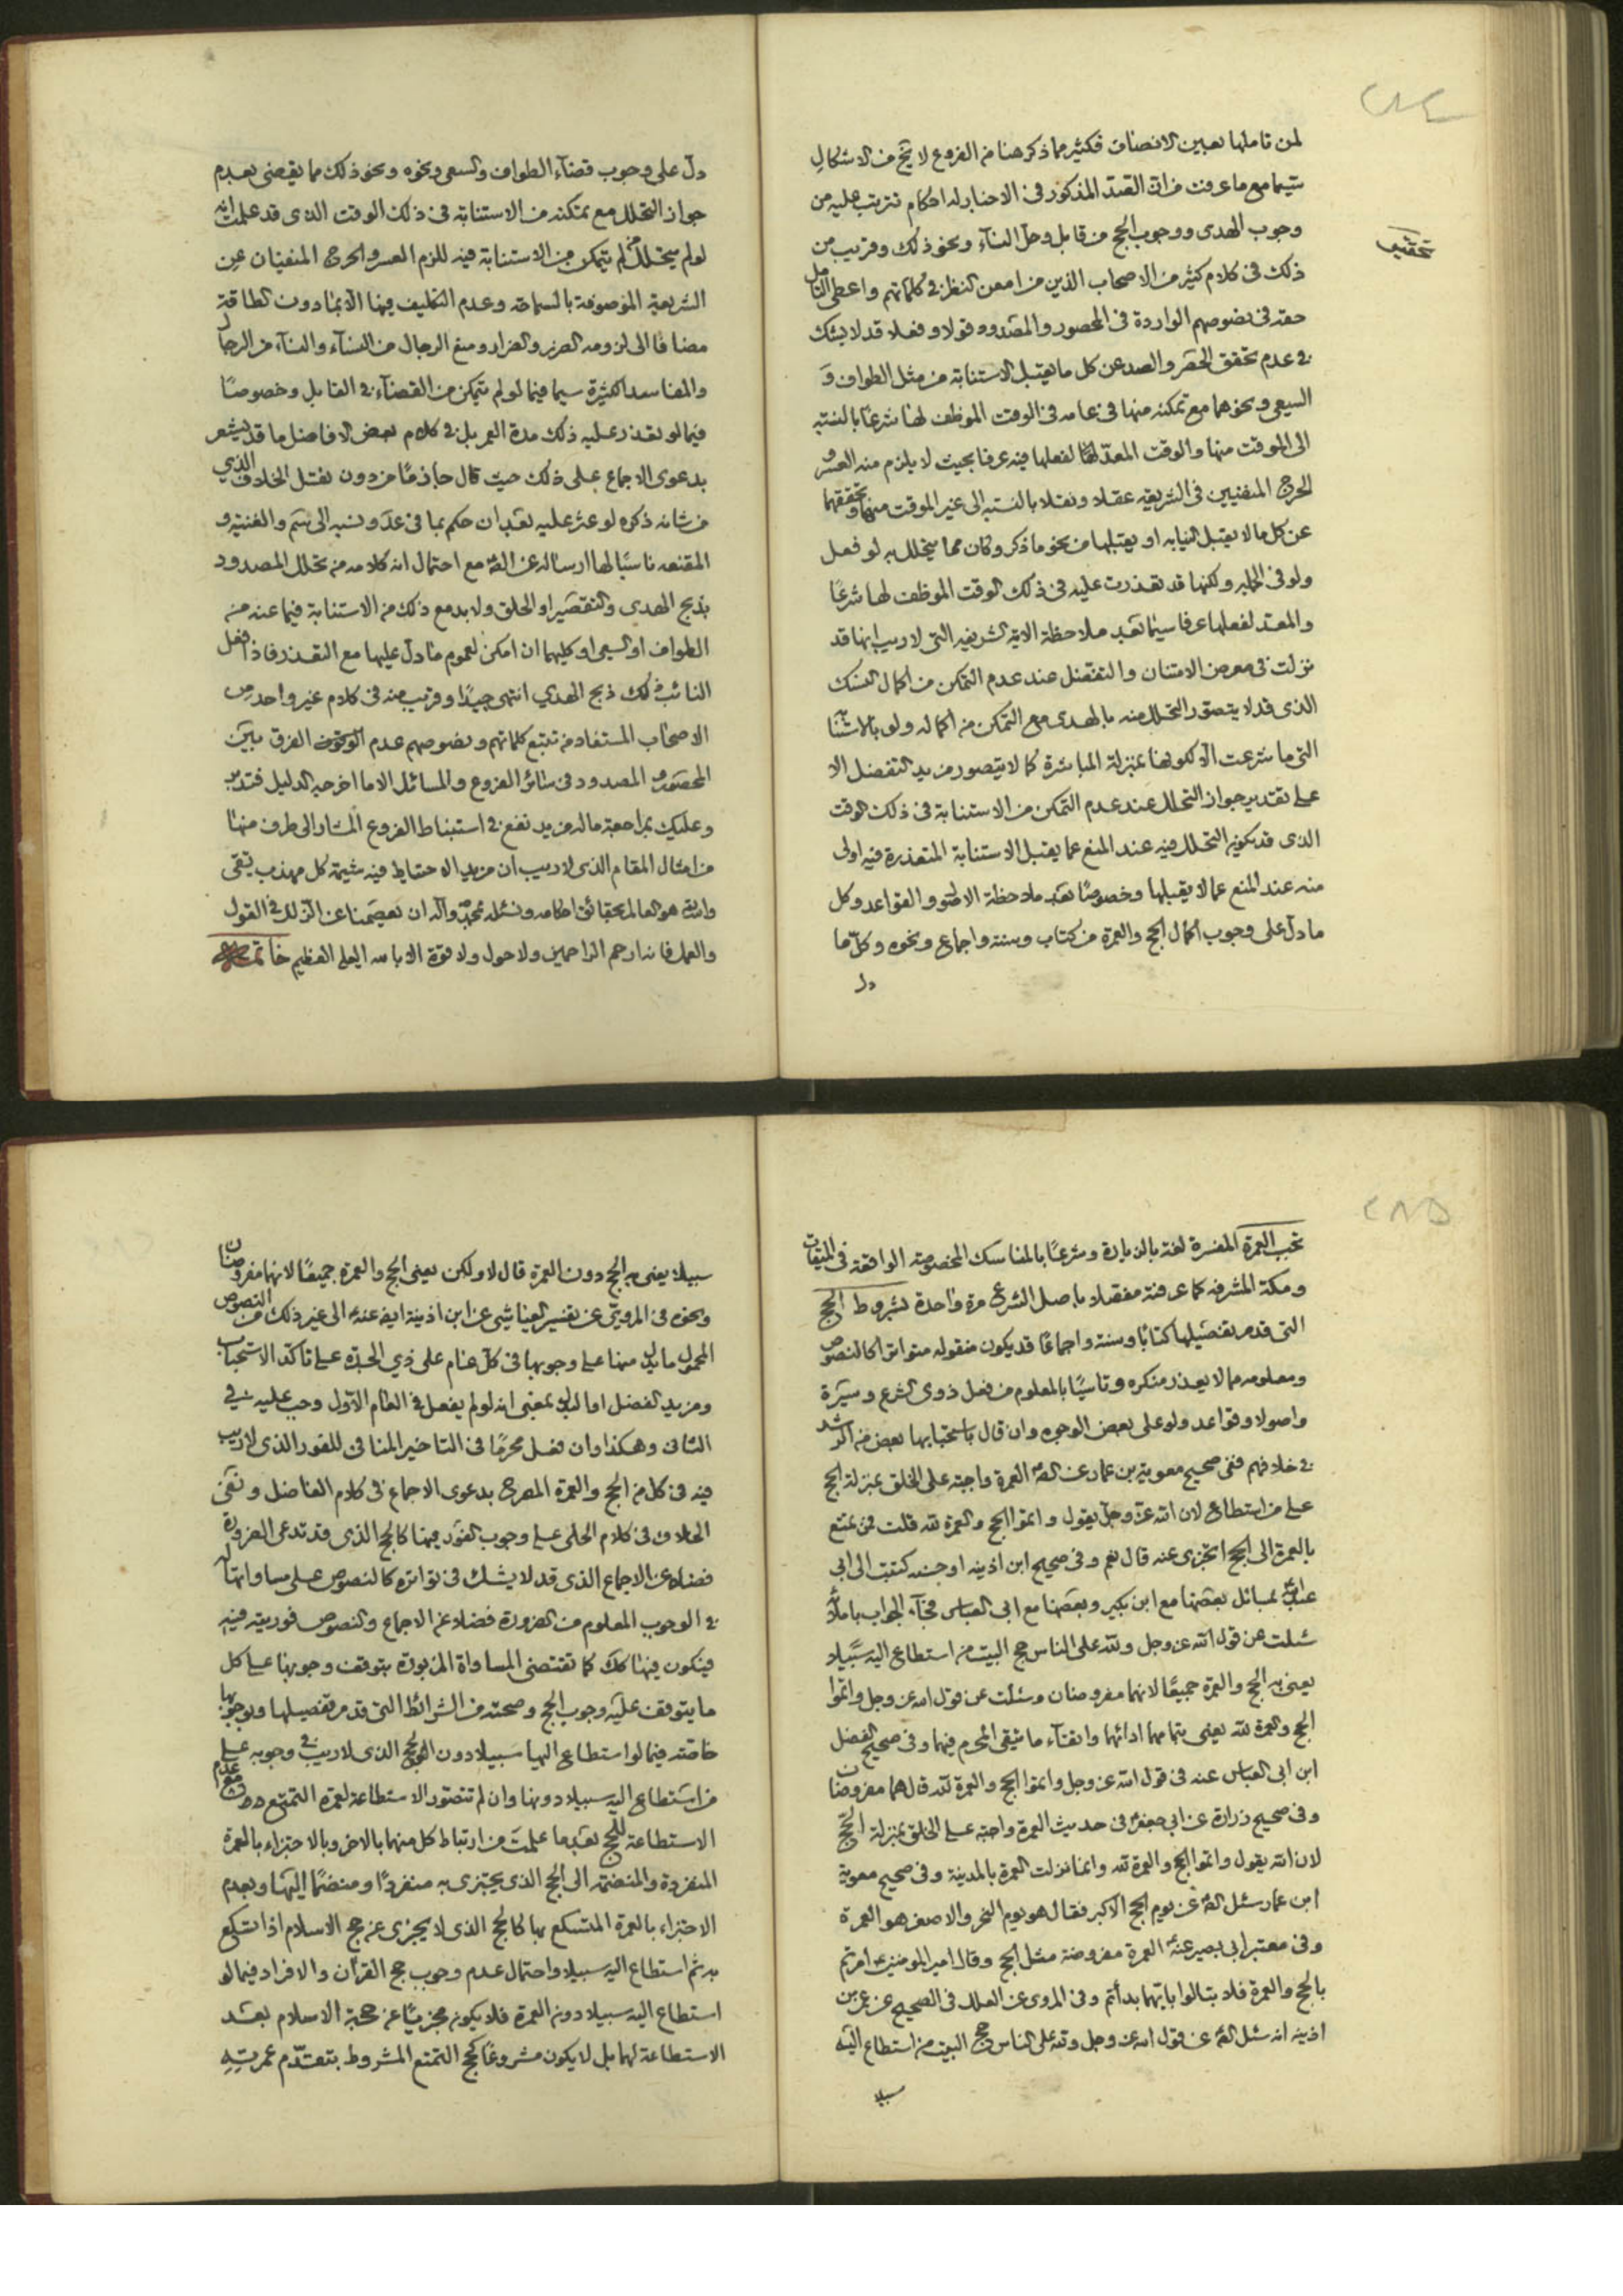 ٢٨٤
لمن تاملها بعين الانصاف فكثير مما ذكر هنا من الفروع لا يخ من الاشكال
سيما مع ما عرفت من ان الصد المذكور فى الاخبار له احكام تترتب عليه من
وجوب الهدى ووجوب الحج من قابل وحل النسآء ونحو ذلك وقريب من
تحقيق
ذلك فى كلام كثير من الاصحاب الذين من امعن النظر فى كلماتهم واعطى التامل
حقه فى نصوصهم الواردة فى المحصور والمصدود قولا وفعلا قد لا يشك
فى عدم تحقق الحصر والصد عن كل ما يقبل الاستنابة من مثل الطواف و
السعى ونحوهما مع تمكنه منها فى عامه فى الوقت الموظف لها شرعا بالنسبه
الى الموقت منها والوقت المعد لها لفعلها فيه عرفا بحيث لا يلزم منه العسر و
الحرج المنفيين فى الشريعه عقلا ونقلا بالنسبه الى غير الموقت منها وتحققهما
عن كل ما لا يقبل النيابه او يقبلها من نحو ما ذكر وكان مما يتحلل به لو فعل
ولو فى الجملة ولكنها قد تعذرت عليه فى ذلك الوقت الموظف لها شرعًا
والمعد لفعلها عرفا سيما بعد ملاحظة الاية الشريفه التى لا ريب انها قد
نزلت فى معرض الامتنان والتفضل عند عدم التمكن من اكمال النسك
الذى قد لا يتصور التحلل منه بالهدى مع التمكن من اكماله ولو بالاستنابة
التى ما شرعت الا لكونها بمنزلة المباشرة كما لا يتصور مزيد التفضل الا
على تقدير جواز التحلل عند عدم التمكن من الاستنابة فى ذلك الوقت
الذى قد يكون التحلل فيه عند المنع عما يقبل الاستنابة المتعذرة فيه اولى
منه عند المنع عما لا يقبلها وخصوصًا بعد ملاحظة الاصل والقواعد وكل
ما دل على وجوب اكمال الحج والعمرة من كتاب وسنة واجماع ونحوه وكل ما
دل
دل على وجوب قضآء الطواف والسعى ونحوه ونحو ذلك مما يقضى بعدم
جواز التحلل مع تمكنه من الاستنابة فى ذلك الوقت الذى قد علمت انه
لو لم يتحلل من لم يتمكن من الاستنابة فيه للزم العسر والحرج المنفيان عن
الشريعة الموصوفة بالسماحة وعدم التكليف فيها الا بما دون الطاقة
مضافا الى لزومه الضرر والضرار ومنع الرجال من النسآء والنسآء من الرجال
والمفاسد الكثيرة سيما فيما لو لم يتمكن من القضآء فى القابل وخصوصًا
فيما لو تعذر عليه ذلك مدة العمر بل فى كلام بعض الافاضل ما قد يشعر
بدعوى الاجماع على ذلك حيث قال جازمًا من دون نقل الخلاف الذي
من شانه ذكره لو عثر عليه بعد ان حكم بما فى عد ونسبه الى يتم والغنية و
المقنعه ناسبًا لها ارساله عن الصم مع احتمال انه كلامه من تحلل المصدود
بذبح الهدى والتقصير او الحلق ولا بد مع ذلك من الاستنابة فيما عنه من
الطواف او السعى او كليهما ان امكن لعموم ما دل عليها مع التعذر فاذا فعل
النائب ذلك ذبح الهدي انتهى جيدًا وقريب منه فى كلام غير واحد من
الاصحاب المستفاد من تتبع كلماتهم ونصوصهم عدم الفرق بين
المحصور والمصدود فى سائر الفروع والمسائل الا ما اخرجه الدليل فتدبر
وعليك بمراجعة ما له مزيد نفع فى استنباط الفروع المشار الى طرف منها
من امثال المقام الذى لا ريب ان مزيد الاحتياط فيه شيمة كل مهذب تقى
والله هو العالم بحقائق احكامه ونسئله بمحمد وآله ان يعصمنا عن الزلل فى القول
والعمل فانه ارحم الراحمين ولا حول ولا قوة الا بالله العلى العظيم خاتمة
٢٨٥
تجب العمرة المفسرة لغة بالزيارة وشرعًا بالمناسك المخصوصه الواقعة فى الميقات
ومكة المشرفه كما عرفته مفصلا باصل الشرع مرة واحدة بشروط الحج
التى قد مر تفصيلها كتابًا وسنة واجماعًا قد يكون منقوله متواترا كالنصوص
ومعلومه مما لا يعذر منكره وتاسيًا بالمعلوم من فعل ذوى الشرع وسيرة
واصولا وقواعد ولو على بعض الوجوه وان قال باستحبابها بعض من الرشد
فى خلافهم ففى صحيح معوية بن عمار عن الصم العمرة واجبة على الخلق بمنزلة الحج
على من استطاع لان الله عز وجل يقول واتموا الحج والعمرة لله قلت فمن تمتع
بالعمرة الى الحج ايجزى عنه قال نعم وفى صحيح ابن اذينه او حسنه كتبت الى ابى
عبد الله بمسائل بعضها مع ابن بكير وبعضها مع ابى العباس فجآء الجواب باملائه
سئلت عن قول الله عز وجل ولله على الناس حج البيت من استطاع اليه سبيلا
يعنى به الحج والعمرة جميعًا لانهما مفروضان وسئلت عن قول الله عز وجل واتموا
الحج والعمرة لله يعنى بتمامهما ادائهما واتقآء ما يتقى المحرم فيهما وفى صحيح الفضل
ابن ابى العباس عنه فى قول الله عز وجل واتموا الحج والعمرة لله قال هما مفروضان
وفى صحيح زرارة عن ابى جعفر فى حديث العمرة واجبه على الخلق بمنزلة الحج
لان الله يقول واتموا الحج والعمرة لله وانما نزلت العمرة بالمدينة وفى صحيح معوية
ابن عمار سئل الصم عن يوم الحج الاكبر فقال هو يوم النحر والاصغر هو العمرة
وفى معتبر ابى بصير عنه العمرة مفروضة مثل الحج وقال امير المومنين ع امرتم
بالحج والعمرة فلا تبالوا بايهما بدأتم وفى المروى عن العلل فى الصحيح عن عمر بن
اذينه انه سئل الصم عن قول الله عز وجل ولله على الناس حج البيت من استطاع اليه
سبيلا
سبيلا يعنى به الحج دون العمرة قال لا ولكن يعنى الحج والعمرة جميعًا لانهما مفروضان
ونحوه فى المروى عن تفسير العياشى عن ابن اذينة ايضا عنه الى غير ذلك من النصوص
المحمول ما يدل منها على وجوبها فى كل عام على ذي الجدة على تاكد الاستحباب
ومزيد الفضل او البدل بمعنى انه لو لم يفعل فى العام الاول وجب عليه فى
الثانى وهكذا وان فعل محرمًا فى التاخير المنافى للفور الذى لا ريب
فيه فى كل من الحج والعمرة المصرح بدعوى الاجماع فى كلام الفاضل ونفى
الخلاف فى كلام الحلى على وجوب الفور فيها كالحج الذى قد تدعى الضرورة
فضلا عن الاجماع الذى قد لا يشك فى تواتره كالنصوص على مساواتها له
فى الوجوب المعلوم من الضرورة فضلا عن الاجماع والنصوص فوريته فيه
فيكون فيها كذلك كما تقتضى المساواة المزبورة بتوقف وجوبها على كل
ما يتوقف عليه وجوب الحج وصحته من الشرائط التى قد مر تفصيلها وبوجوبها
خاصته فيما لو استطاع اليها سبيلا دون الحج الذى لا ريب فى وجوبه على
من استطاع اليه سبيلا دونها وان لم تتصور الاستطاعة لعمرة التمتع مع عدم
الاستطاعة للحج بعد ما علمت من ارتباط كل منهما بالاخر وبالاجتزاء بالعمرة
المنفردة والمنضمة الى الحج الذى يجتزى به منفردًا ومنضمًا اليها وبعدم
الاجتزاء بالعمرة المتسكع بها كالحج الذى لا يجزى عن حج الاسلام اذا تسكع
به ثم استطاع اليه سبيلا واحتمال عدم وجوب حج القرآن والافراد فيما لو
استطاع اليه سبيلا دون العمرة فلا يكون مجزيًا عن حجة الاسلام بعد
الاستطاعة لهما بل لا يكون مشروعًا كحج التمتع المشروط بتقدم عمرته